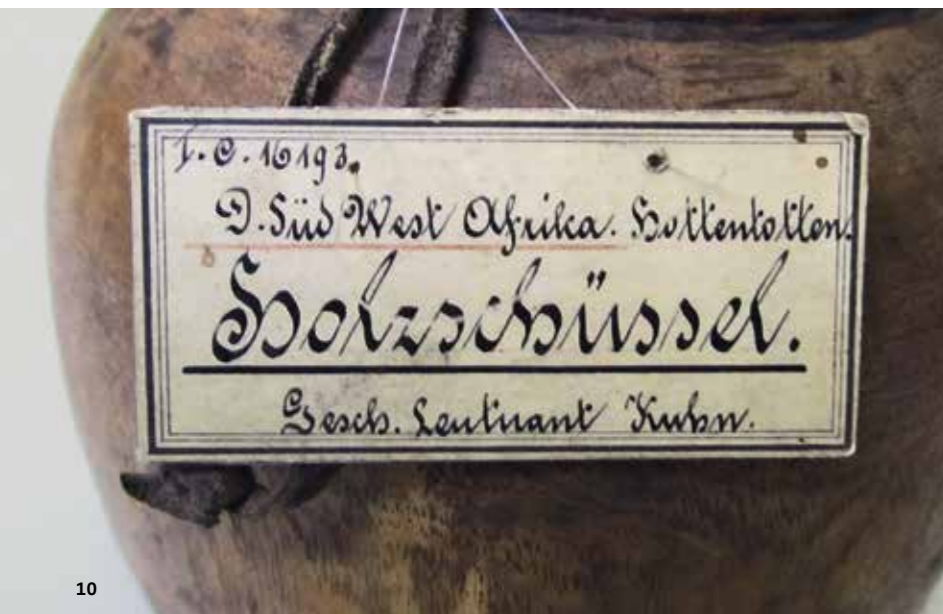 I. C. 16193.
D. Süd West Afrika. Hottentotten.
Holzschüssel.
Gesch. Leutnant Kuhn.
10